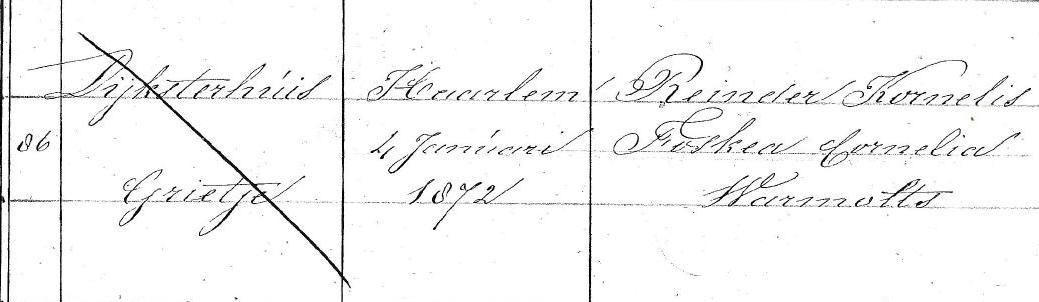 Dijksterhúis Haarlem Reinder Kornelis
86 4 Janúari Foskea Cornelia
Grietje 1872 Warmolts